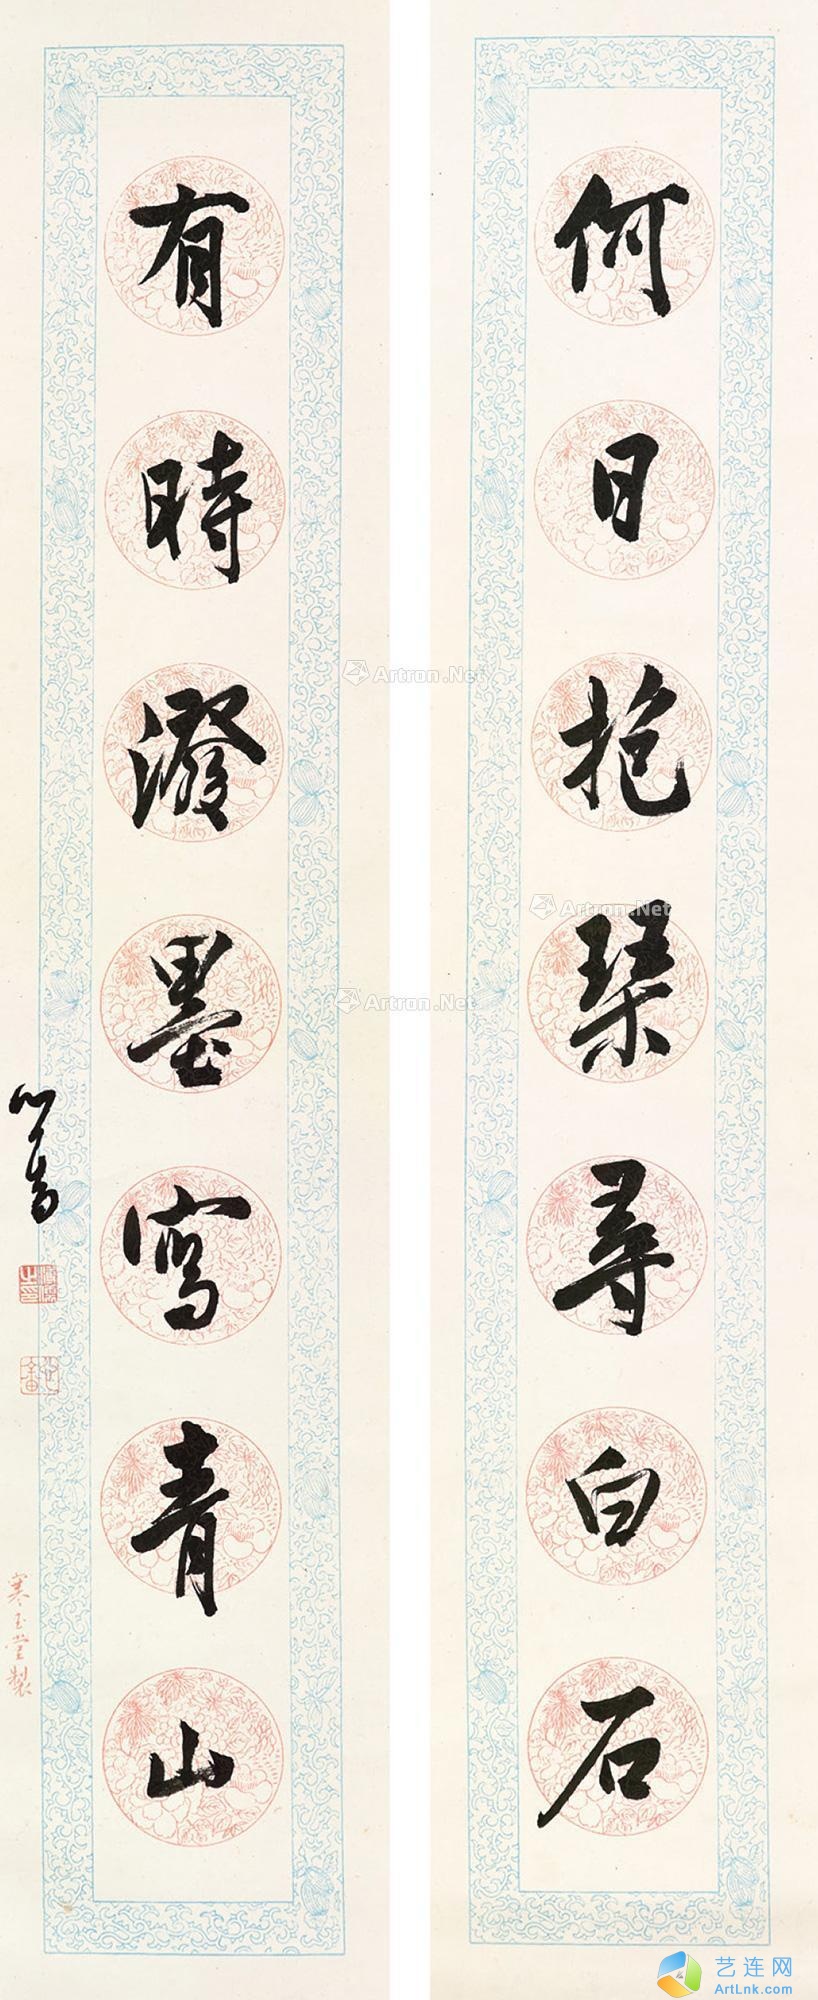 何日抱琴尋白石
有時潑墨寫青山
心畬
溥儒之印
寒玉堂製
Artron.Net
Artron.Net
Artron.Net
艺连网
ArtLnk.com